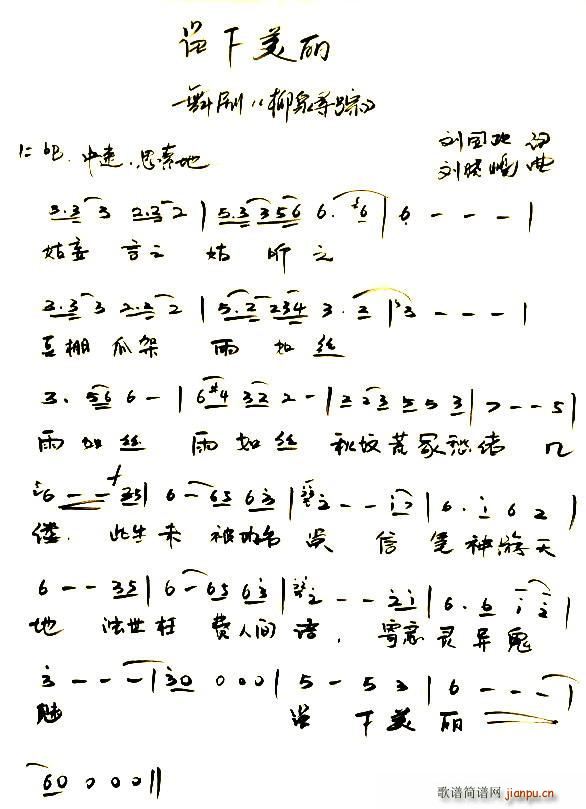 留下美丽
舞剧《柳泉寻踪》
1=bE 中速、思索地
刘国
词
刘晓峰 曲
3·3 3 2·3 2 | 5·3 3 5 6 6· 6 | 6 - - - |
姑妄 言之 姑 听 之
3·3 3 2·2 2 | 5·2 2 3 4 3· 2 | 3 - - - |
豆棚 瓜架 雨 如 丝
3· 5 6 6 - | 6 #4 3 2 2 - | 2 2 3 5 5 3 | 7 - - 5 |
雨 如 丝 雨 如 丝 秋坟荒冢愁绪 几
6 - - 3 5 | 6 - 6 5 6 3 | 2 - - i | 6· i 6 2 |
缕 此生 未 被功名 误 信 笔 神游天
6 - - 3 5 | 6 - 6 5 6 3 | 2 - - 2 i | 6· 6 i 2 |
地 浊世枉 费人间 语, 寄意 灵 异 鬼
3 - - - | 3 0 0 0 0 | 5 - 5 3 | 6 - - - |
魅 留 下 美 丽
6 0 0 0 0 ||
歌谱简谱网
jianpu.cn